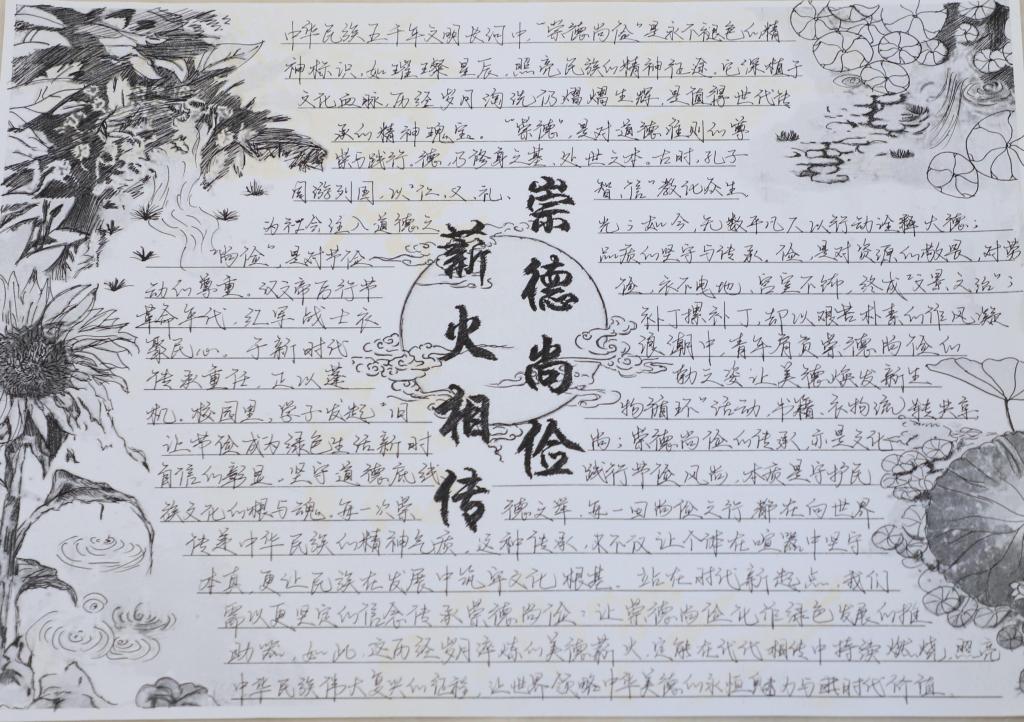 中华民族五千年文明长河中“崇德尚俭”是永不褪色的精
神标识，如璀璨星辰，照亮民族的精神征途。它深植于
文化血脉，历经岁月淘洗仍熠熠生辉，是值得世代传
承的精神瑰宝。“崇德”，是对道德准则的尊
崇与践行，德乃修身之基，处世之本。古时，孔子
周游列国，以“仁、义、礼、智、信”教化众生
为社会注入道德之光；如今，无数平凡人以行动诠释大德；
“尚俭”，是对节俭品质的坚守与传承，俭，是对资源的敬畏，对劳
动的尊重。汉文帝厉行节俭，衣不曳地，宫室不饰，终成“文景之治”；
革命年代，红军战士衣补丁摞补丁，却以艰苦朴素的作风凝
聚民心。于新时代浪潮中，青年有责崇德尚俭的
传承重任，正以蓬勃之姿让美德焕发新生
机，校园里，学子发起“旧物循环”活动，书籍、衣物流转共享
让节俭成为绿色生活新时尚；崇德尚俭的传承，亦是文化
自信的彰显，坚守道德底线践行节俭风尚，本质是守护民
族文化的根与魂，每一次崇德之举，每一回尚俭之行都在向世界
传递中华民族的精神气质，这种传承，不仅让个体在喧嚣中坚守
本真，更让民族在发展中筑牢文化根基。站在时代新起点，我们
需以更坚定的信念传承崇德尚俭：让崇德尚俭化作绿色发展的推
助器。如此，这历经岁月淬炼的美德薪火，定能在代代相传中持续燃烧，照亮
中华民族伟大复兴的征程，让世界领略中华美德的永恒魅力与时代价值。
崇德尚俭
薪火相传